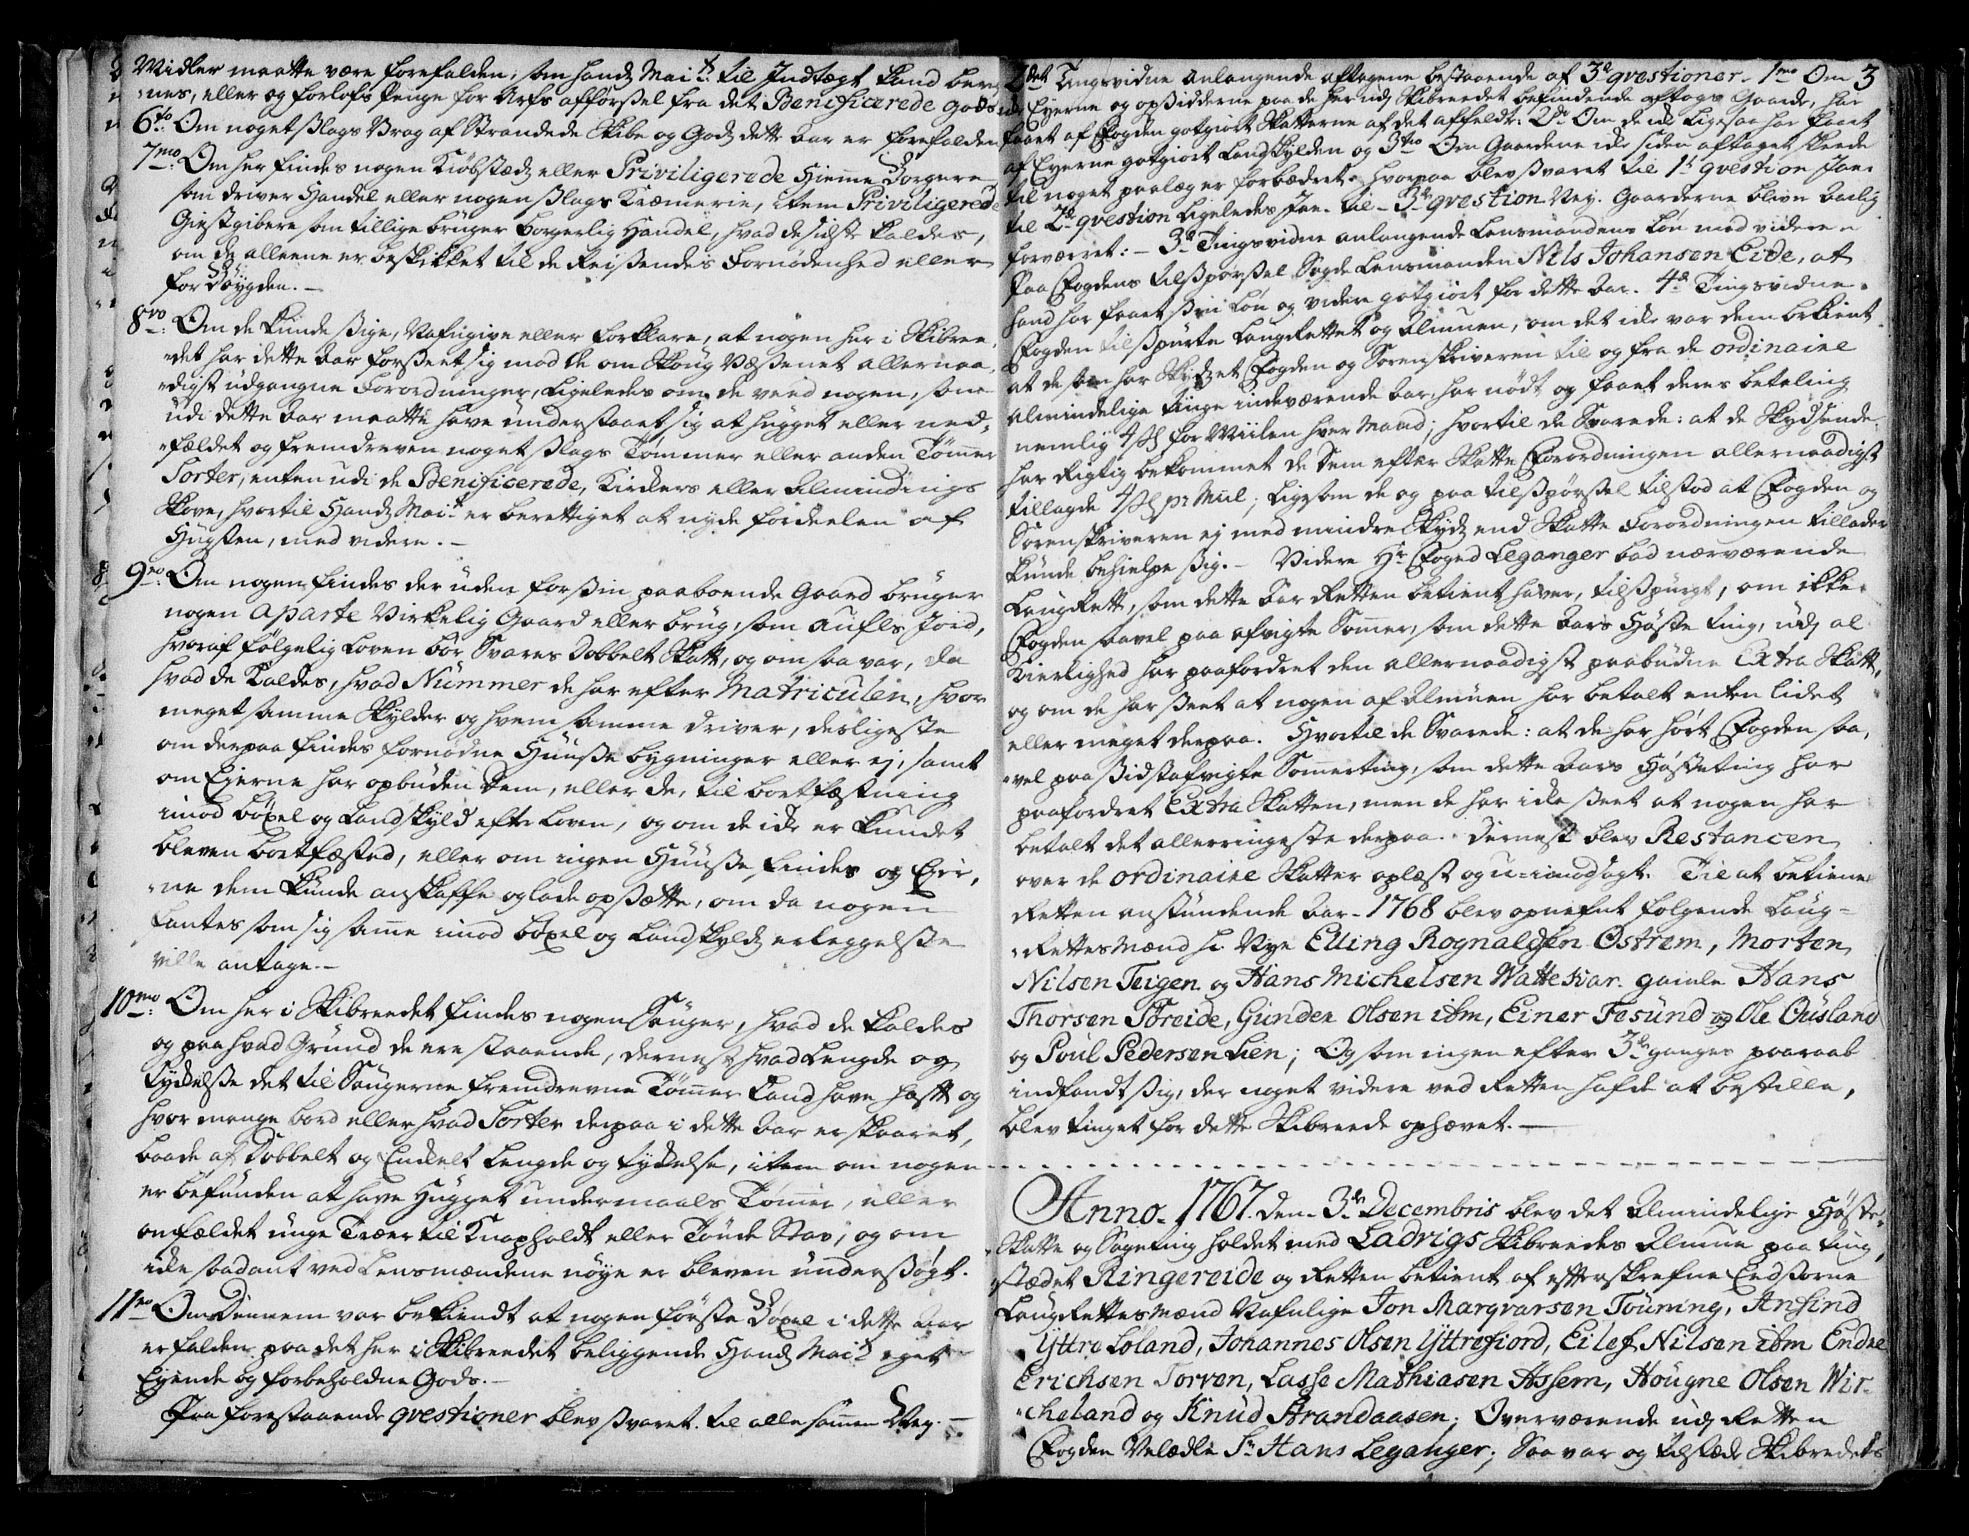 Midler maatte være forefalden, som hands Mai:t til Jndtægt kand bereg
nes, eller og forlofs Penge for Arfs afførsel fra det Benificerede gods
6to Om noget slags Vrag af Strandede Skibe og Gods dette Aar er forefalden
7mo: Om her findes nogen Kiøbstæds eller Priviligerede Hiemme Borgere
som driver Handel eller nogen slags Kræmerie, item Priviligerede
Giestgibere som tillige brüger borgerlig Handel, hvad de sidste kaldes,
om de alleene er beskikket til de Reisendes Fornødenhed eller
for Bøygden. –
8vo: Om de kunde sige, Nafngive eller forklare, at nogen her i Skibree,
det har dette Aar forseet sig mod de om Skoug Væsenet allernaa,
digst udgangne Forordninger, ligeledes om de veed nogen, som
udi dette Aar maatte have understaaet sig at hugget eller ned,
fældet og fremdreven noget slags Tømmer eller anden Tømmer
Sorter, enten udi de Benificerede, Kirkers eller Almindings
Skove, hvortil Hands Mai:t er berettiget at nyde fordeelen af
Hugsten, med videre. –
9no: Om nogen findes der uden for sin paaboende Gaard bruger
nogen aparte Virkelig Gaard eller brug, som aufls Jord,
hvoraf følgelig Loven bør Svares dobbelt Skatt, og om saa var, da
hvad de kaldes, hvad Nummer de har efter Matriculen, hvor
meget samme Skylder og hvem samme driver, desligeste
om derpaa findes fornødne Huuse bygninger eller ej, samt
om Ejerne har opbuden dem, eller de, til bortfæstning
imod böxel og Landskyld efter Loven, og om de icke er kundet
bleven bortfæsted, eller om ingen Huuse findes og Eyer,
ne dem kunde anskaffe og lade opsætte, om da nogen
fantes som sig samme imod böxel og Landskylds erleggelse
ville antage. –
10mo: Om her i Skibreedet findes nogen Sauger, hvad de kaldes
og paa hvad Grund de ere staaende, dernest hvad Lengde og
tykkelse det til Saugerne fremdrevne Tømmer kand have hafft og
hvor mange bord eller hvad Sorter derpaa i dette Aar er skaaret,
baade af dobbelt og Enkelt Lengde og tykkelse, item om nogen
er befunden at have Hugget undermaals Tømmer, eller
omfældet unge Træer til Knapholdt eller Tønde Stav, og om
icke saadant ved Lensmændene nøye er bleven undersøgt.
11mo Om dennem var bekiendt at nogen første Böxel i dette Aar
er falden paa det her i Skibreedet beliggende Hands Mai:t eget
Egende og forbeholdne Gods. –
Paa forestaaende qvestioner blev svaret til alle sammen Ney. –
3
2det Tingsvidne Anlangende aftagene bestaaende af 3de qvestioner. 1mo Om
icke Eyerne og opsidderne paa de her udj Skibreedet befindende aftags Gaarde, har
faaet af Fogden gotgiort Skatterne af det affeldte: 2do Om de icke ligesaa har faaet
af Eyerne gotgiort Landskylden og 3tio Om Gaardene icke siden aftaget skeede
til noget paalæg er forbædret. hvorpaa blev svaret til 1te qvestion Jae.
til 2de qvestion ligeledes Jae. til 3de qvestion Ney. Gaarderne bliver aarlig
forværret: – 3de Tingsvidne anlangende Lensmandens Løn med videre
Paa Fogdens tilspørsel Sagde Lensmanden Nils Johansen Eide, at
hand har faaet sin Løn og videre gotgiort for dette Aar. 4de Tingsvidne.
Fogden tilspurte Laugrettet og Almuen, om det icke var dem bekient
at de som har Skydset Fogden og Sorenskriveren til og fra de ordinaire
almindelige tinge indeværende Aar, har nødt og faaet deres betaling
nemlig 4 s for Miilen hver Mand; hvortil de Svarede: at de Skydsende
har Rigtig bekommet de dem efter Skatte Forordningen allernaadigst
tillagde 4 s pr Miil; ligesom de og paa tilspørsel tilstod at Fogden og
Sorenskriveren ej med mindre Skyds end Skatte Forordningen tillader
kunde behielpe sig. – Videre Hr Foged Leganger bad nærværende
Laugrett, som dette Aar Retten betient haver, tilspurgt, om ikke
Fogden saavel paa afvigte Sommer, som dette Aars Høste ting, udj al
Kierlighed har paafordret den allernaadigst paabudne Extra Skatt,
og om de har seet at nogen af Almuen har betalt enten lidet
eller meget derpaa. Hvortil de Svarede: at de har hørt Fogden saa,
vel paa sidstafvigte Sommerting, som dette Aars Høsteting har
paafordret Extra Skatten, men de har icke seet at nogen har
betalt det allerringeste derpaa. Dernest blev Restancen
over de ordinaire Skatter oplæst og u-imodsagt. Til at betiene
Retten anstundende Aar 1768 blev opnefnt følgende Laug=
Rettesmænd sc: Nye Elling Rognaldsen Østrem, Morten
Nilsen Teigen og Hans Michelsen Wattetvar. gamle Hans
Thorsen Tøreide, Gunder Olsen ibm, Einer Fosund og Ole Øusland
og Poul Pedersen Lien; Og som ingen efter 3de ganges paaraab
indfandt sig, der noget videre ved Retten hafde at bestille,
blev tinget for dette Skibreede ophævet. –
Anno 1767. den 3de Decembris blev det Almindelige Høste,
Skatte og Sageting holdet med Ladvigs Skibreedes Almue paa ting,
stædet Ringereide og Retten betient af efterskrefne Eedsorne
Laugrettesmænd Nafnlige Jon Marqvarsen Touning, Ansind
Yttre Løland, Johannes Olsen Yttrefiord, Eilef Nilsen ibm Endre
Erichsen Torven, Lasse Mathiasen Assem, Hougne Olsen Wir-
cheland og Knud Strandaasen; Overværende udj Retten
Fogden Velædle Sr Hans Leganger; Saa var og tilstæde Skibredets